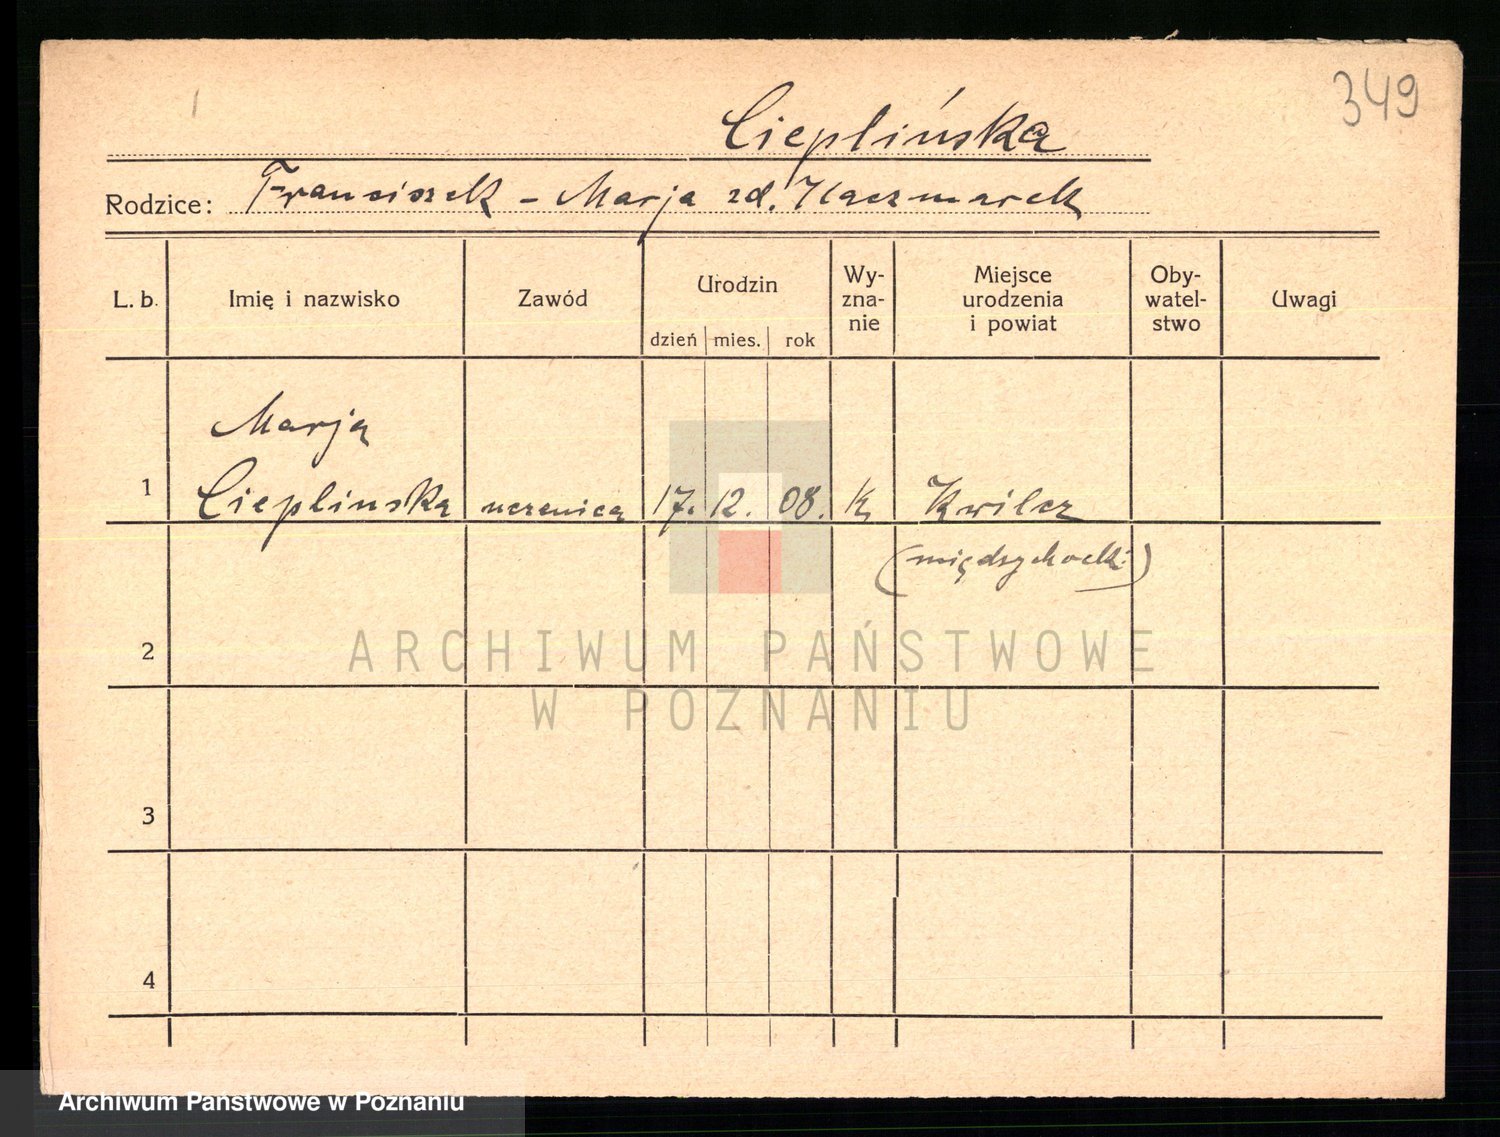 349
Cieplińska
Rodzice: Franciszek – Marja zd. Kaczmarek
L. b. Imię i nazwisko Zawód Urodzin dzień mies. rok Wy-zna-nie Miejsce urodzenia i powiat Oby-watel-stwo Uwagi
Marja
1 Cieplinska uczenica 17. 12. 08. k Kwilcz
(międzychodzki)
2
ARCHIWUM PAŃSTWOWE
W POZNANIU
3
4
Archiwum Państwowe w Poznaniu